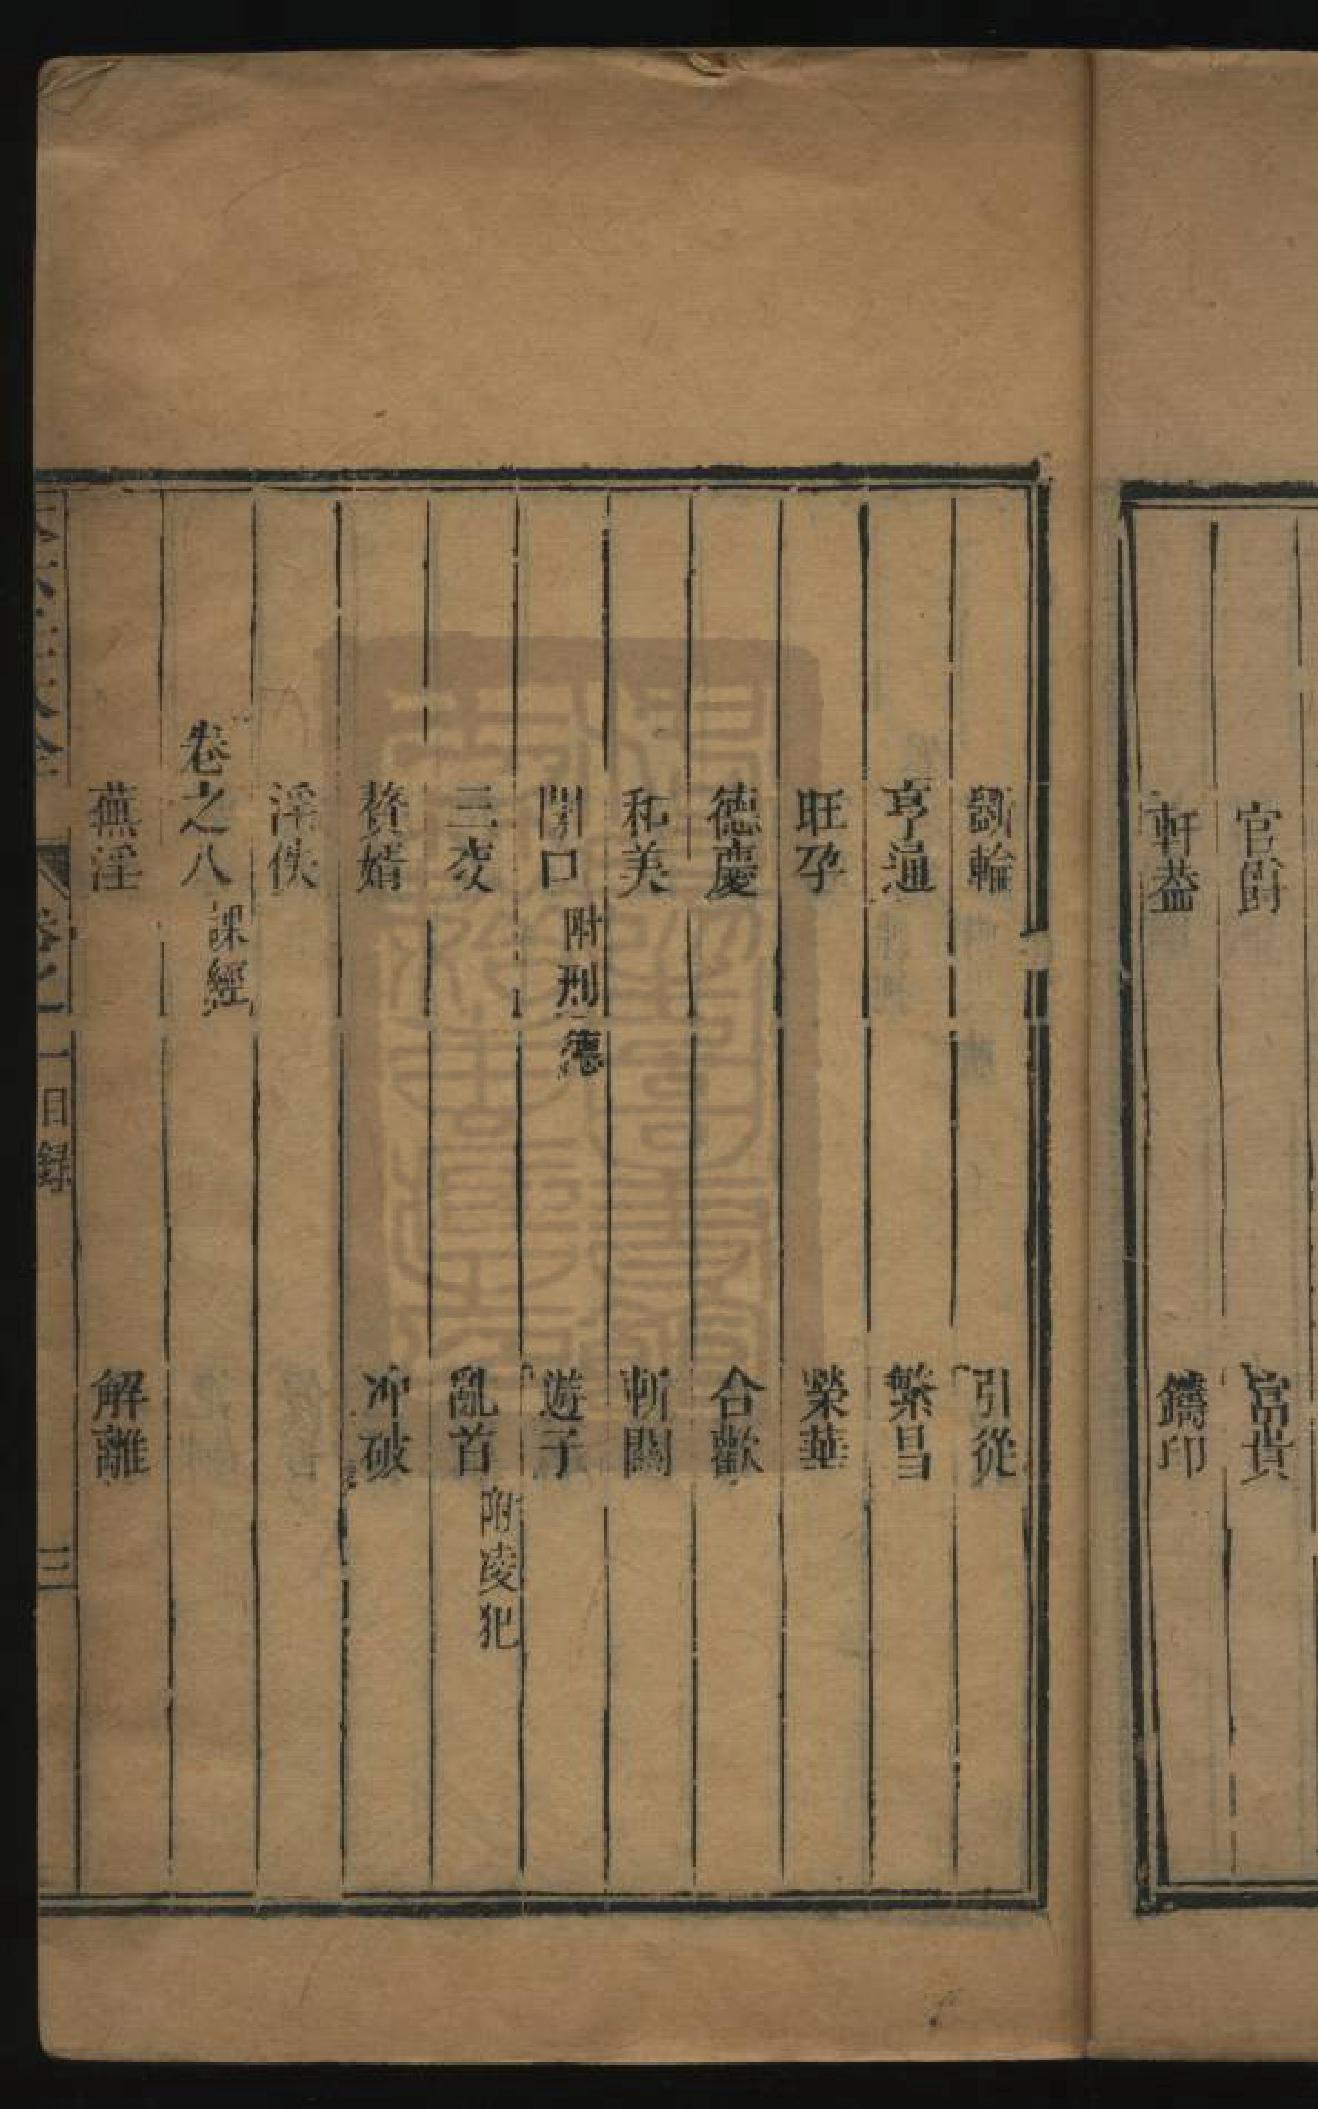 官爵　富貴
軒葢　鑄印
斵輪　引從
亨通　繁昌
旺孕　榮華
德慶　合歡
和美　斬關
閉口 附刑德　遊子
三交　亂首 附凌犯
贅婿　冲破
淫佚
卷之八 課經
蕪淫　解離
目録　三